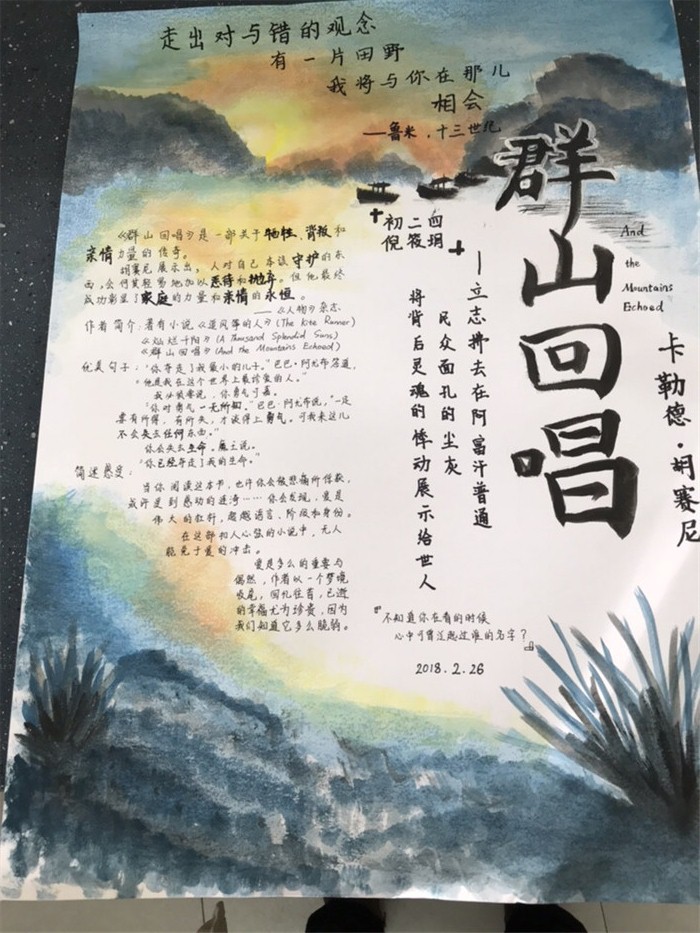 走出对与错的观念
有一片田野
我将与你在那儿
相会
——鲁米，十三世纪
群山回唱
And
the
Mountains
Echoed
卡勒德·胡赛尼
初二四
倪筱玥
——立志拂去在阿富汗普通
民众面孔的尘灰
将背后灵魂的悸动展示给世人
《群山回唱》是一部关于牺牲、背叛和
亲情力量的传奇。
胡赛尼展示出，人对自己本该守护的东
西，会何其轻易地加以虐待和抛弃。但他最终
成功彰显了家庭的力量和亲情的永恒。
——《人物》杂志
作者简介：著有小说《追风筝的人》(The Kite Runner)
《灿烂千阳》(A Thousand Splendid Suns)
《群山回唱》(And the Mountains Echoed)
优美句子：“你夺走了我最小的儿子。”巴巴·阿尤布答道，
“他是我在这个世界上最珍爱的人。”
我必须要说，你勇气可嘉。
“你对勇气一无所知。”巴巴·阿尤布说，“一定
要有所得，有所失，才谈得上勇气。可我来这儿
不会失去任何东西。”
你会失去生命。魔王说。
“你已经夺走了我的生命。”
简述感受：
当你阅读这本书，也许你会被悲痛所俘获，
或许受到感动的逆湾……你会发现，爱是
伟大的杠杆，超越语言、阶级和身份。
在这部扣人心弦的小说中，无人
能免于爱的冲击。
爱是多么的重要与
偶然，作者以一个梦境
收尾，回扎往昔，已逝
的幸福尤为珍贵，因为
我们知道它多么脆弱。
『不知道你在有的时候
心中可曾泛起过谁的名字？』
2018.2.26